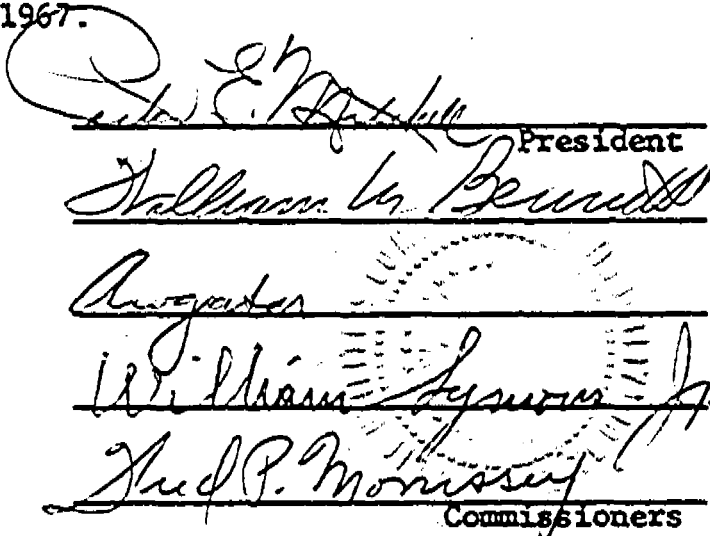 1967.
Peter E. Mitchell
President
William M. Bennett
William Symons Jr
Fred P. Morrissey
Commissioners